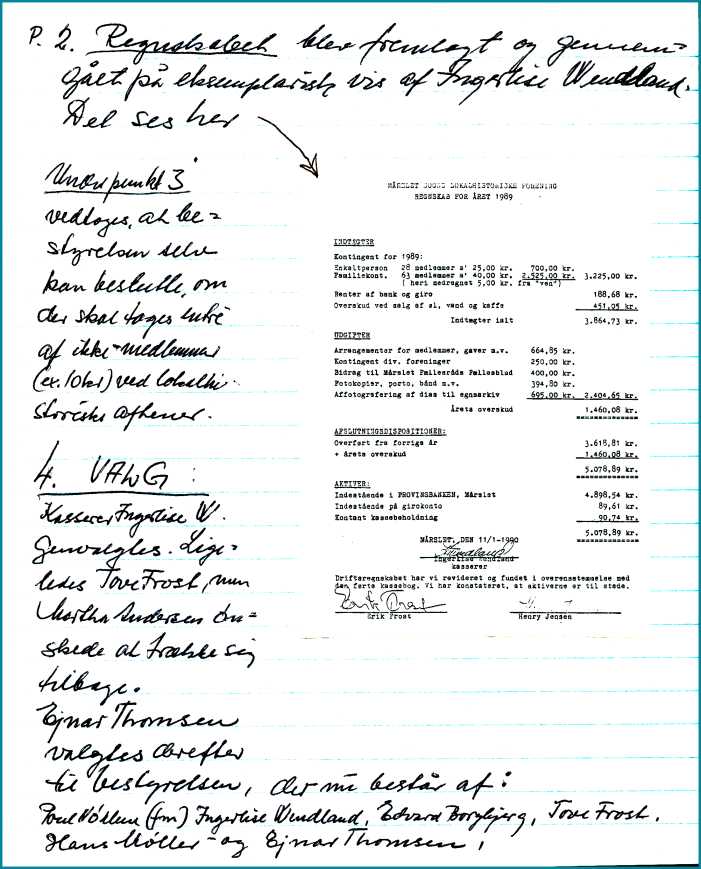 P. 2. Regnskabet blev fremlagt og gennem=
gået på eksemplarisk vis af Ingerlise Wendland.
Det ses her
Under punkt 3
vedtoges, at be=
styrelsen selv
kan beslutte, om
der skal tages entré
af ikke-medlemmer
(ex. 10 kr) ved lokalhi-
storiske aftener.
4. VALG:
Kasserer Ingerlise W.
Genvalgtes. Lige=
ledes Tove Frost, men
Martha Andersen øn=
skede at trække sig
tilbage.
Ejnar Thomsen
valgtes derefter
til bestyrelsen, der nu består af:
Poul (fm) Ingerlise Wendland, Edvard Borgbjerg, Tove Frost,
Hans Møller - og Ejnar Thomsen,
MÅRSLET SOGNS LOKALHISTORISKE FORENING
REGNSKAB FOR ÅRET 1989
INDTÆGTER
Kontingent for 1989:
Enkeltperson 28 medlemmer a' 25,00 kr. 700,00 kr.
Familiekont. 63 medlemmer a' 40,00 kr. 2.525,00 kr. 3.225,00 kr.
( heri medregnet 5,00 kr. fra "ven")
Renter af bank og giro 188,68 kr.
Overskud ved salg af øl, vand og kaffe 451,05 kr.
Indtægter ialt 3.864,73 kr.
UDGIFTER
Arrangementer for medlemmer, gaver m.v. 664,85 kr.
Kontingent div. foreninger 250,00 kr.
Bidrag til Mårslet Fællesråds Fællesblad 400,00 kr.
Fotokopier, porto, bånd m.v. 394,80 kr.
Affotografering af dias til egnsarkiv 695,00 kr. 2.404,65 kr.
Årets overskud 1.460,08 kr.
AFSLUTNINGSDISPOSITIONER:
Overført fra forrige år 3.618,81 kr.
+ årets overskud 1.460,08 kr.
5.078,89 kr.
AKTIVER:
Indestående i PROVINSBANKEN, Mårslet 4.898,54 kr.
Indestående på girokonto 89,61 kr.
Kontant kassebeholdning 90,74 kr.
5.078,89 kr.
MÅRSLET, DEN 11/1-1990
Ingerlise Wendland
kasserer
Driftsregnskabet har vi revideret og fundet i overensstemelse med
den førte kassebog. Vi har konstateret, at aktiverne er til stede.
Erik Frost
Erik Frost Henry Jensen